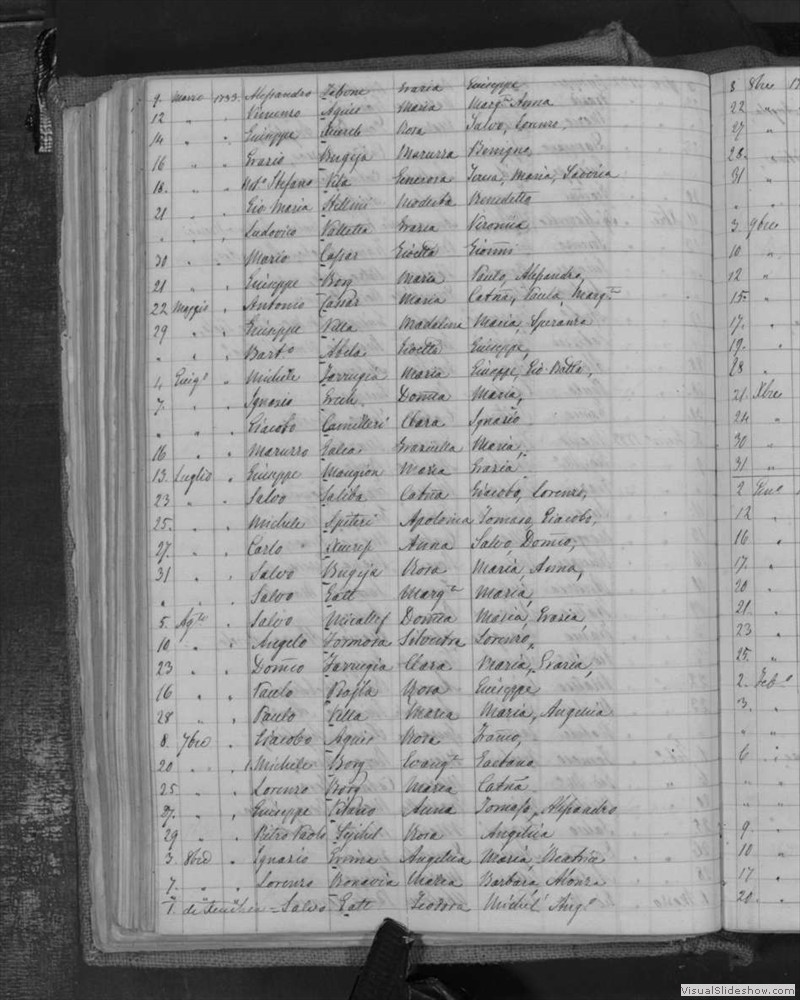 9. Marzo 1733. Alessandro Zebone Grazia Giuseppe
12 " " Vincenzo Agius Maria Marg.ta Anna
14 " " Giuseppe Xuereb Rosa Salvo, Lorenzo,
16 " " Grazio Bugeja Maruzza Benigna,
18. " " Not.o Stefano Vita Generosa Teresa, Maria, Saveria
21 " " Gio Maria Stellini Modesta Benedetta
" " " Ludovico Valletta Grazia Veronica
30 " " Mario Caşar Gioetta Gioanni
21 " " Giuseppe Borg Maria Paulo, Alessandro,
22 Maggio " Antonio Caşar Maria Catña, Paula, Marg.ta
29 " " Giuseppe Vella Madalena Maria, Speranza
" " " Bart.o Abela Gioetta Giuseppe,
4 Giug.o " Michele Farrugia Maria Giuseppe, Gio Batta,
7. " " Ignazio Grech Domca Maria,
" " " Giacobo Camilleri Clara Ignazio
16 " " Maruzzo Galea Graziulla Maria,
13. Luglio " Giuseppe Mangion Maria Grazia
23 " " Salvo Saliba Catña Giacobo, Lorenzo,
25. " " Michele Spiteri Apolonia Tomaso, Giacobo,
27. " " Carlo Xuereb Anna Salvo, Domco,
31 " " Salvo Bugeja Rosa Maria, Anna,
" " Salvo Gatt Marg.ta Maria,
5. Ag.to " Salvo Micallef Domca Maria, Grazia,
10 " " Angelo Formosa Silvestra Lorenzo,
23 " " Domco Farrugia Clara Maria, Grazia,
16 " " Paulo Rosa Giuseppe
28 " " Paulo Vella Maria Maria, Angelica
8. 7bre " Giacobo Agius Rosa Franco,
20 " " Michele Borg Evang.ta Gaetana
25 " " Lorenzo Borg Maria Catña
27. " " Giuseppe Vitario Anna Tomaso, Alessandro
29 " " Pietro Paolo Sejchel Rosa Angelica
3 8bre " Ignazio Angelica Maria, Beatrice
7. " " Lorenzo Bonavia Maria Barbara, Alonza
7. Salvo Gatt Teodora Michel' Ang.o
8 8bre 17
22 "
27 "
28. "
31 "
" "
3. 9bre
10. "
12 "
15. "
17. "
19. "
28 "
21. Xbre
24 "
30 "
31 "
2
12 "
16 "
17. "
20 "
21. "
23 "
25. "
2. Feb.o
3. "
" "
6 "
" "
" "
9. "
10 "
17 "
20. "
VisualSlideshow.com